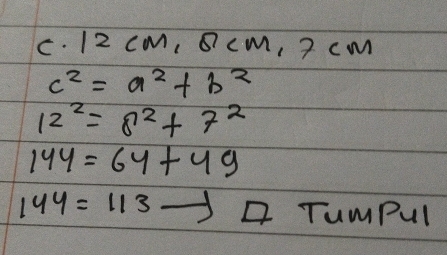 c. 12 cm, 8 cm, 7 cm
c² = a² + b²
12² = 8² + 7²
144 = 64 + 49
144 = 113 → □ TumPul